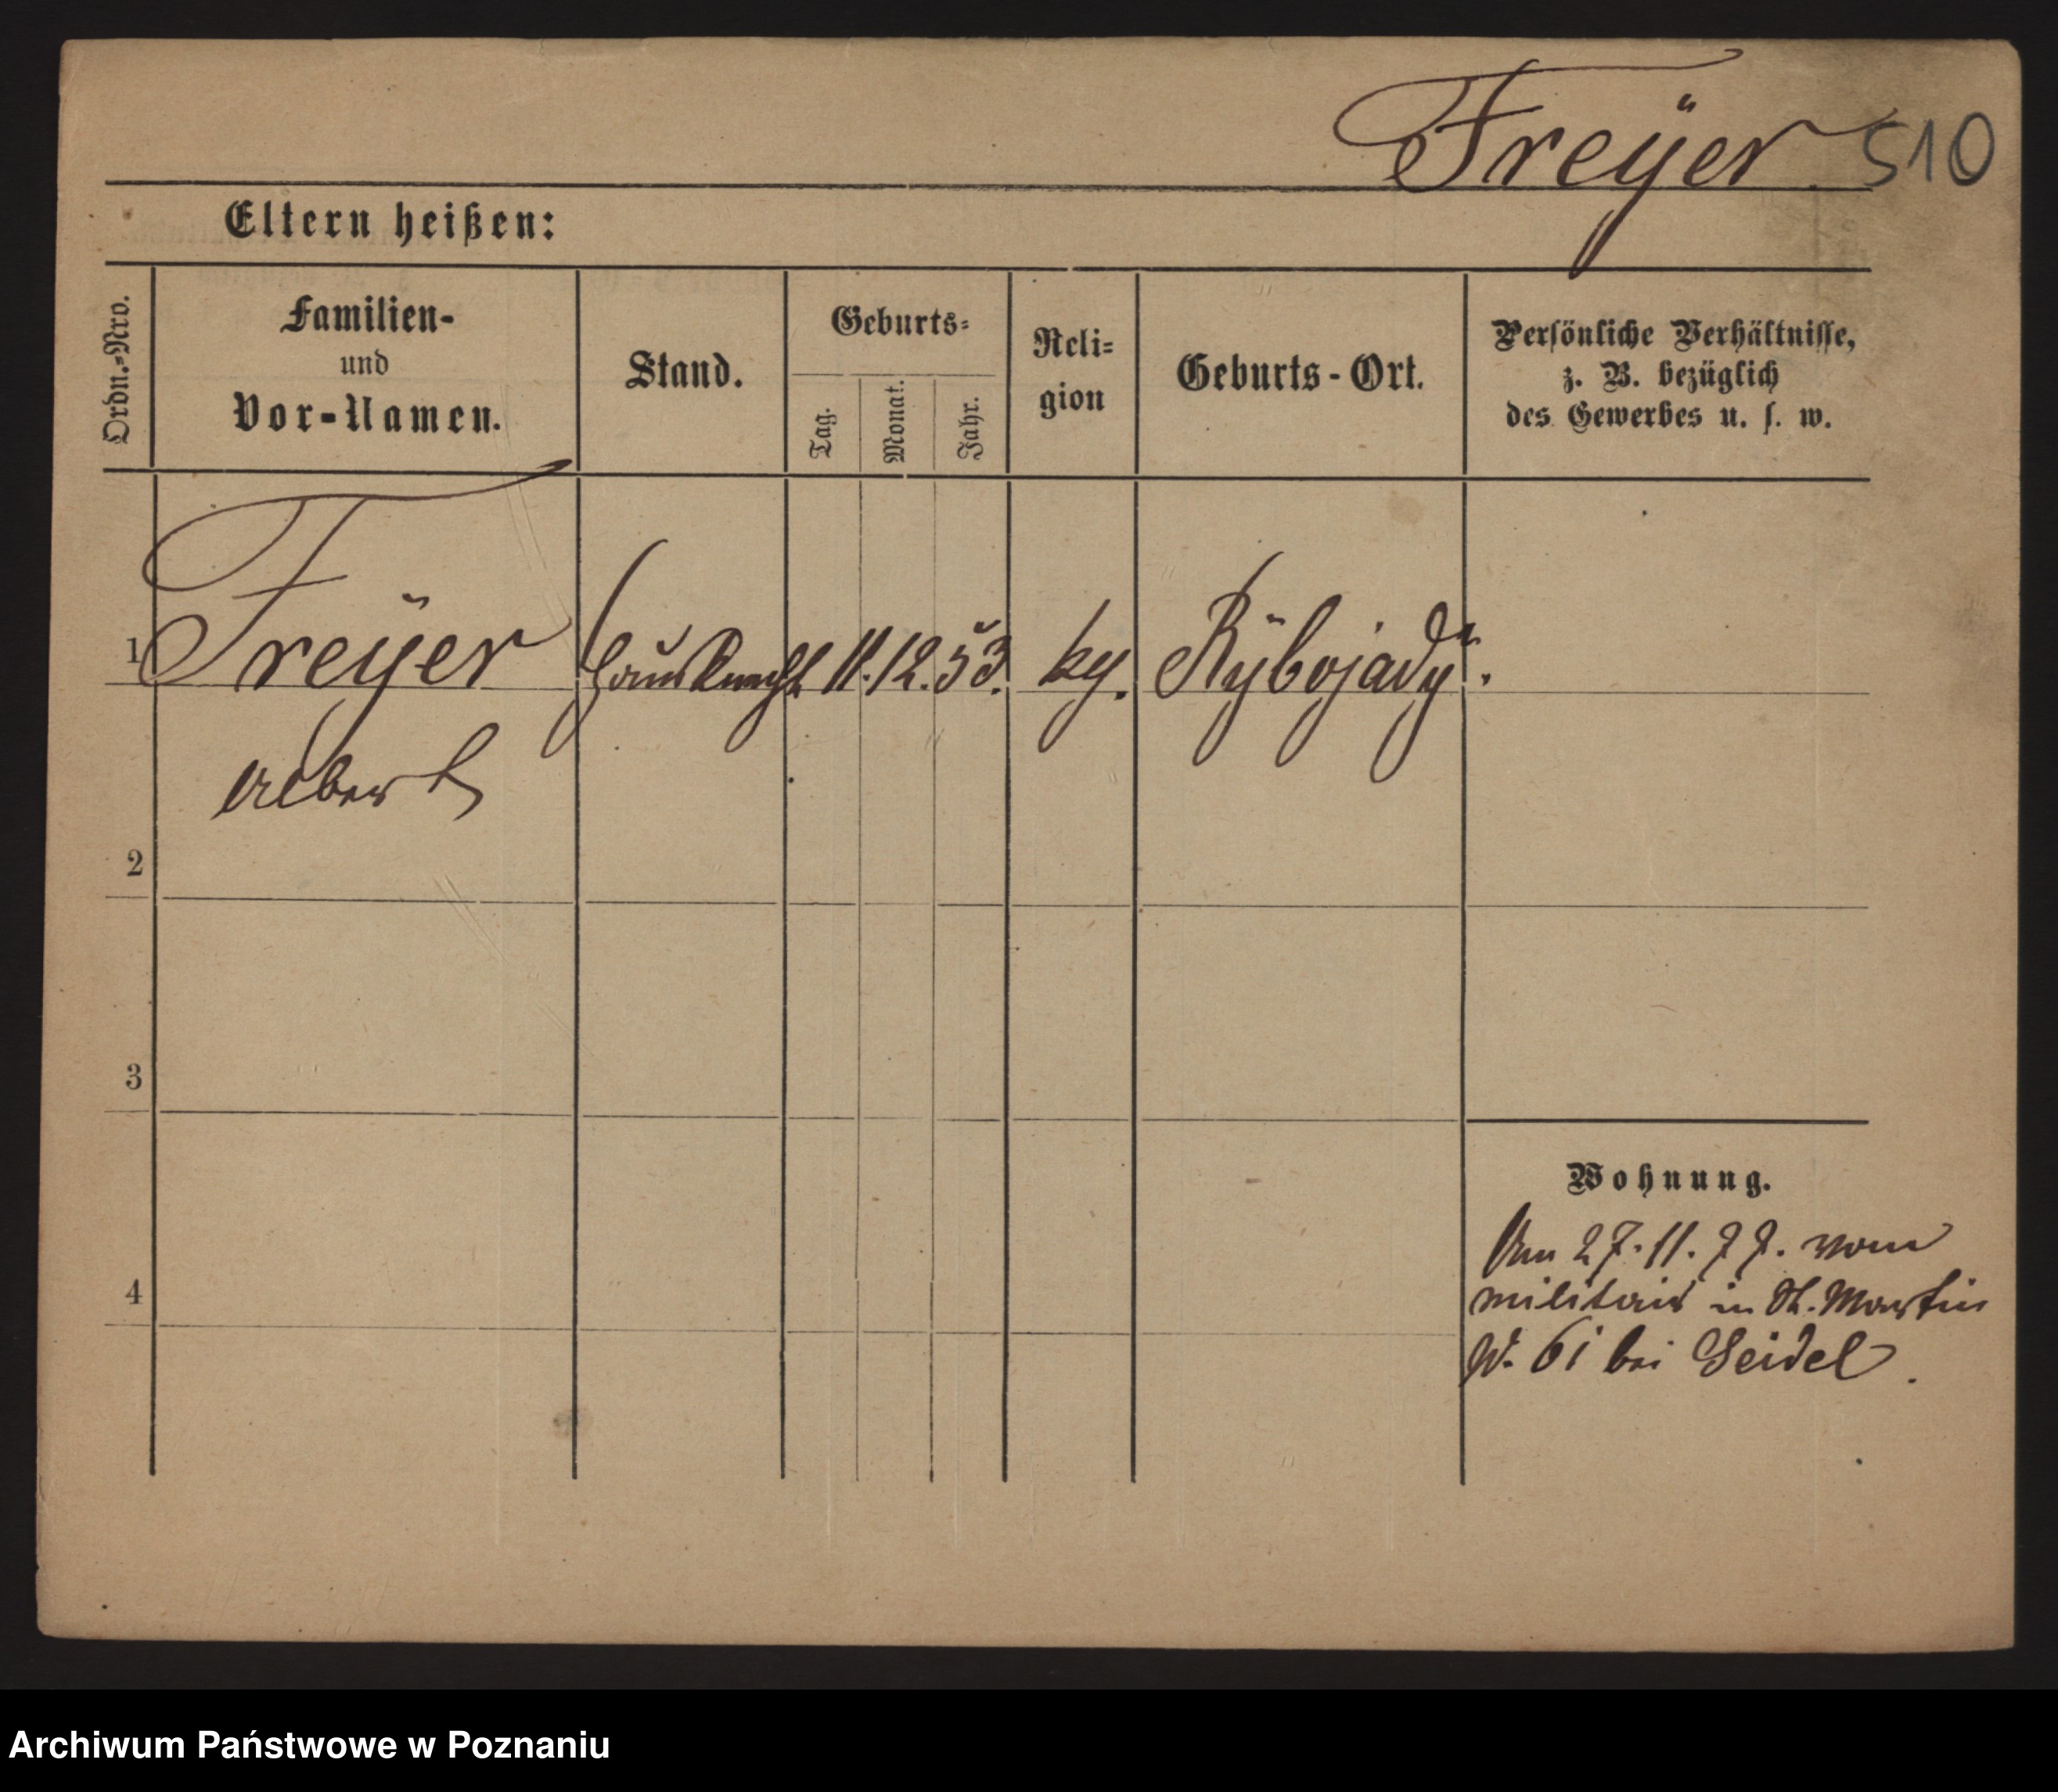 Freÿer. 510
Eltern heißen:
Ordn.-Nro.
Familien-
und
Vor-Namen.
Stand.
Geburts-
Tag.
Monat.
Jahr.
Reli-
gion
Geburts-Ort.
Persönliche Verhältnisse,
z. B. bezüglich
des Gewerbes u. s. w.
1 Freÿer Hausknecht 11. 12. 53. Rÿbojadÿ.
Albert
2
3
4
Wohnung.
27. 11. 77. vom
militair in St. Martin
bei Seidel.
Archiwum Państwowe w Poznaniu